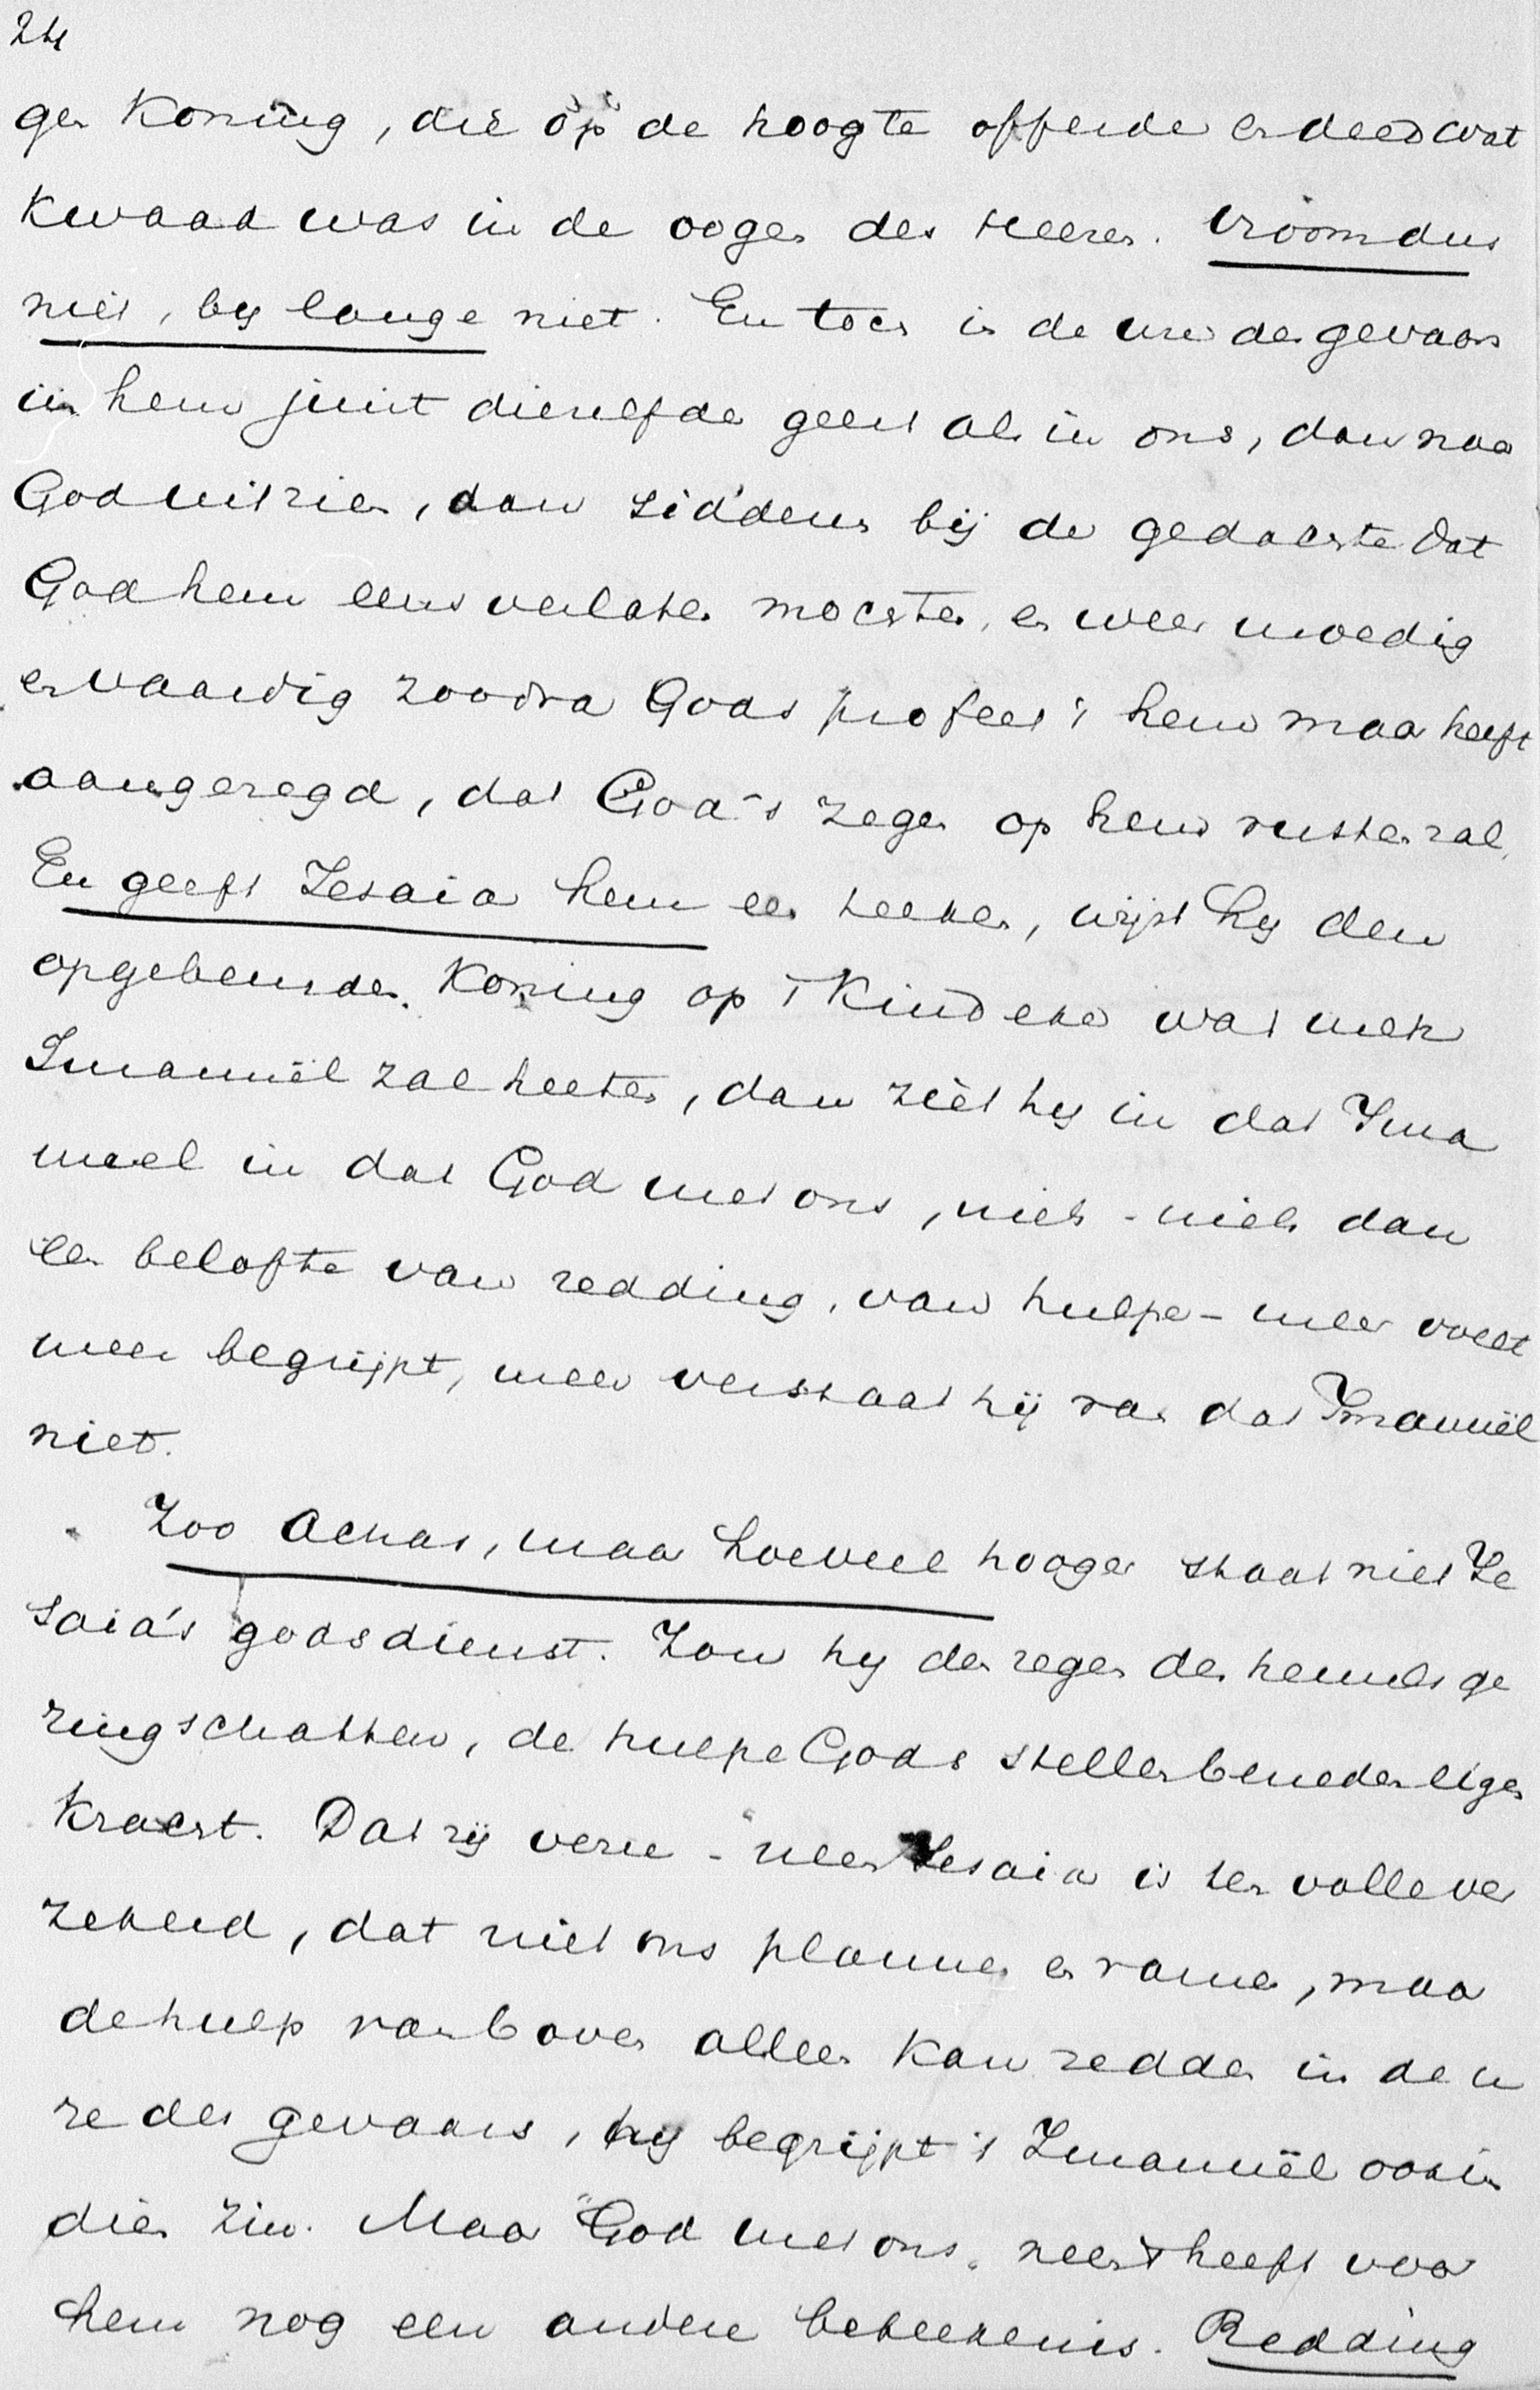 24
gen Koning, die op de hoogte offerde en deed wat
kwaad was in de oogen des Heeren. Vroom dus
niet, bij lange niet. En toch in de ure des gevaars
in hem juist dienzelfden geest als in ons, dan naar
God uitzien, dan sidderen bij de gedachte dat
God hem eens verlaten mochten, en weer moedig
en vaardig zoodra Gods profeet 't hem maar heeft
aangezegd, dat God's zegen op hem rusten zal.
En geeft Jesaia hem een teeken, wijst hij den
opgebeurden Koning op 't Kindeke wat men
Imanuël zal heeten, dan ziet hij in dat Ima
nuel in dat God met ons, niets - niets dan
een belofte van redding, van hulpe - meer voelt
meer begrijpt, meer verstaat hij van dat Imanuël
niet.
Zoo Achas, maar hoeveel hooger staat niet Je
saia's godsdienst. Zou hij den zegen des hemels ge
ringschatten, de hulpe Gods stellen beneden eigen
kracht. Dat zij verre - neen Jesaia is ten volle ver
zekerd, dat niet ons plannen en ramen, maar
de hulp van boven alleen kan redden in de u
re des gevaars, hij begrijpt 't Imanuël ook in
dien zin. Maar "God met ons" neen 't heeft voor
hem nog een andere beteekenis. Redding